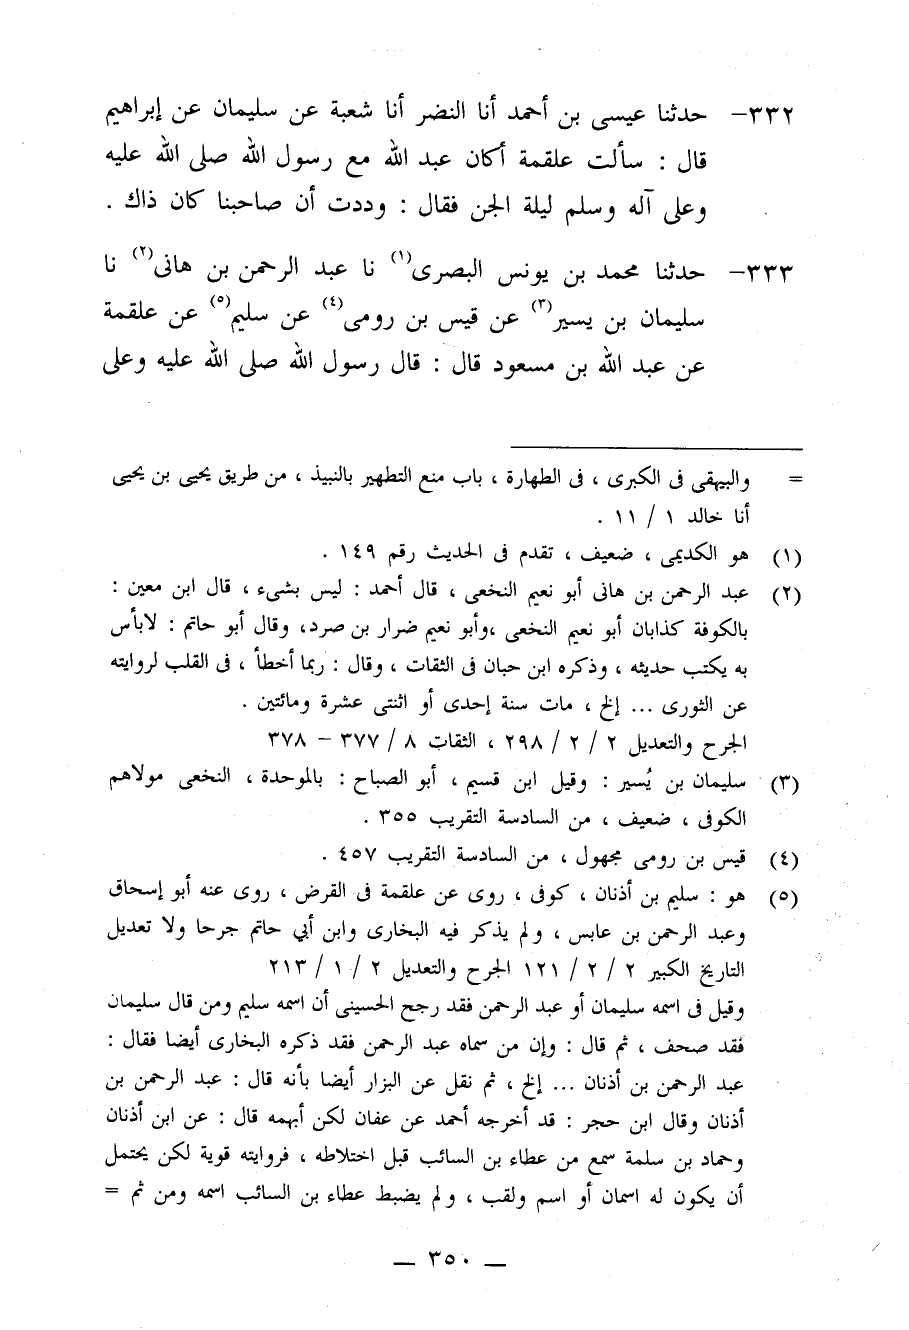 ٣٣٢- حدثنا عيسى بن أحمد أنا النضر أنا شعبة عن سليمان عن إبراهيم
قال : سألت علقمة أكان عبد الله مع رسول الله صلى الله عليه
وعلى آله وسلم ليلة الجن فقال : وددت أن صاحبنا كان ذاك .
٣٣٣- حدثنا محمد بن يونس البصرى(١) نا عبد الرحمن بن هانى(٢) نا
سليمان بن يسير(٣) عن قيس بن رومى(٤) عن سليم(٥) عن علقمة
عن عبد الله بن مسعود قال : قال رسول الله صلى الله عليه وعلى
= والبيهقى فى الكبرى ، فى الطهارة ، باب منع التطهير بالنبيذ ، من طريق يحيى بن يحيى
أنا خالد ١ / ١١ .
(١) هو الكديمى ، ضعيف ، تقدم فى الحديث رقم ١٤٩ .
(٢) عبد الرحمن بن هانى أبو نعيم النخعى ، قال أحمد : ليس بشىء ، قال ابن معين :
بالكوفة كذابان أبو نعيم النخعى ،وأبو نعيم ضرار بن صرد، وقال أبو حاتم : لابأس
به يكتب حديثه ، وذكره ابن حبان فى الثقات ، وقال : ربما أخطأ ، فى القلب لروايته
عن الثورى ... إلخ ، مات سنة إحدى أو اثنتى عشرة ومائتين .
الجرح والتعديل ٢ / ٢ / ٢٩٨ ، الثقات ٨ / ٣٧٧ – ٣٧٨
(٣) سليمان بن يُسير : وقيل ابن قسيم ، أبو الصباح : بالموحدة ، النخعى مولاهم
الكوفى ، ضعيف ، من السادسة التقريب ٣٥٥ .
(٤) قيس بن رومى مجهول ، من السادسة التقريب ٤٥٧ .
(٥) هو : سليم بن أذنان ، كوفى ، روى عن علقمة فى القرض ، روى عنه أبو إسحاق
وعبد الرحمن بن عابس ، ولم يذكر فيه البخارى وابن أبي حاتم جرحا ولا تعديل
التاريخ الكبير ٢ / ٢ / ١٢١ الجرح والتعديل ٢ / ١ / ٢١٣
وقيل فى اسمه سليمان أو عبد الرحمن فقد رجح الحسينى أن اسمه سليم ومن قال سليمان
فقد صحف ، ثم قال : وإن من سماه عبد الرحمن فقد ذكره البخارى أيضا فقال :
عبد الرحمن بن أذنان ... إلخ ، ثم نقل عن البزار أيضا بأنه قال : عبد الرحمن بن
أذنان وقال ابن حجر : قد أخرجه أحمد عن عفان لكن أبهمه قال : عن ابن أذنان
وحماد بن سلمة سمع من عطاء بن السائب قبل اختلاطه ، فروايته قوية لكن يحتمل
أن يكون له اسمان أو اسم ولقب ، ولم يضبط عطاء بن السائب اسمه ومن ثم =
— ٣٥٠ —